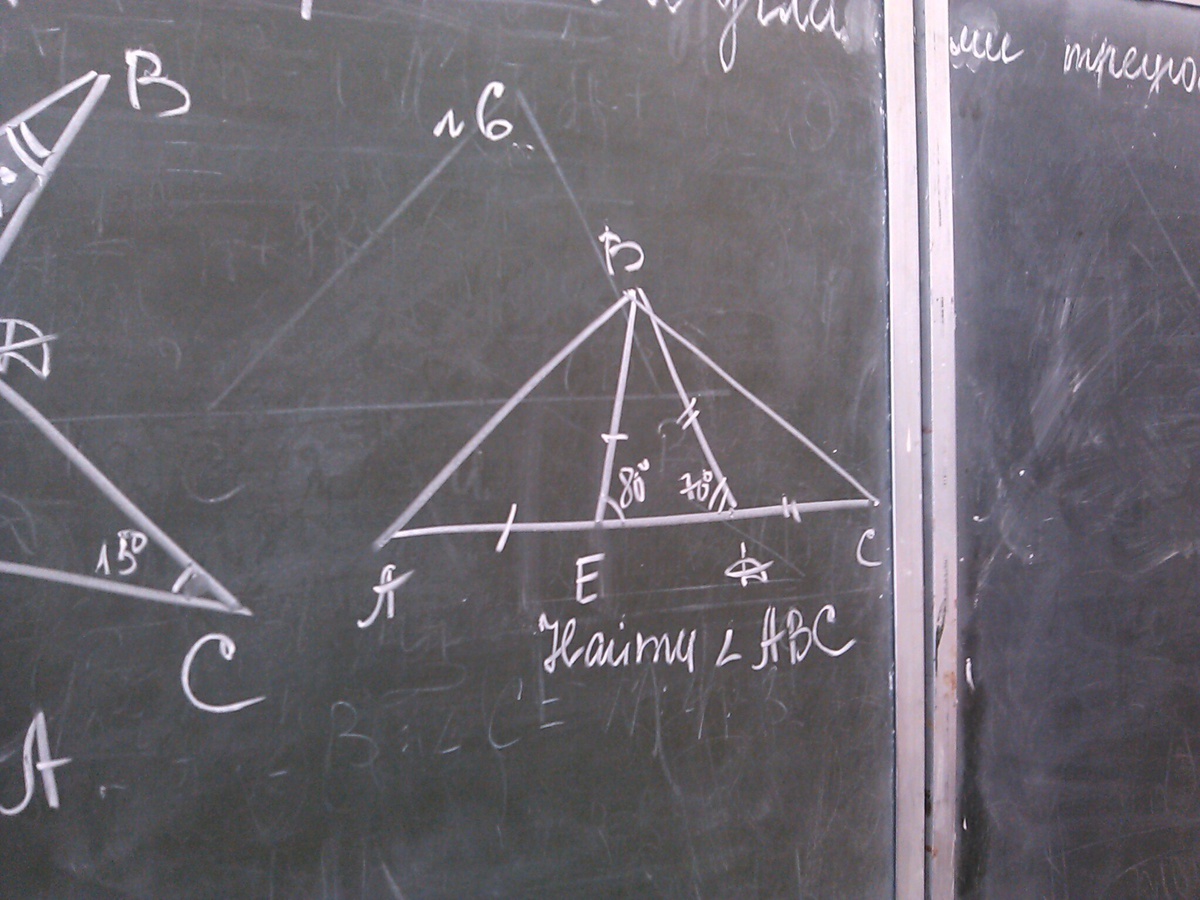 угла
ми треуго
B
№6
B
Д
80°
70°
15°
A
E
Д
C
Найти ∠ ABC
C
A